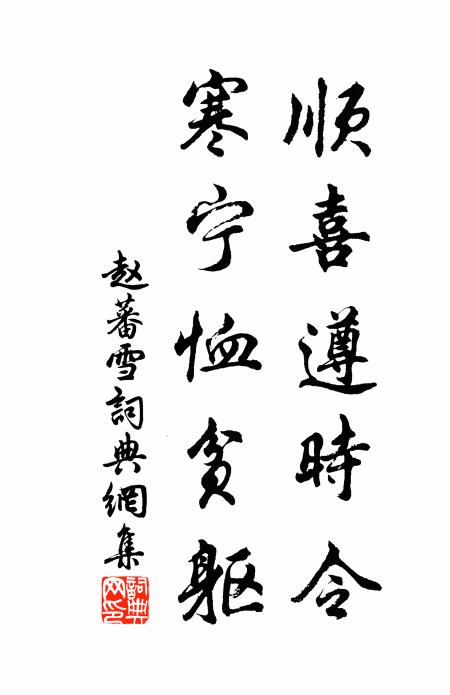 顺喜遵時令
寒宁恤貧躯
赵蕃雪詞典網集
詞典网印